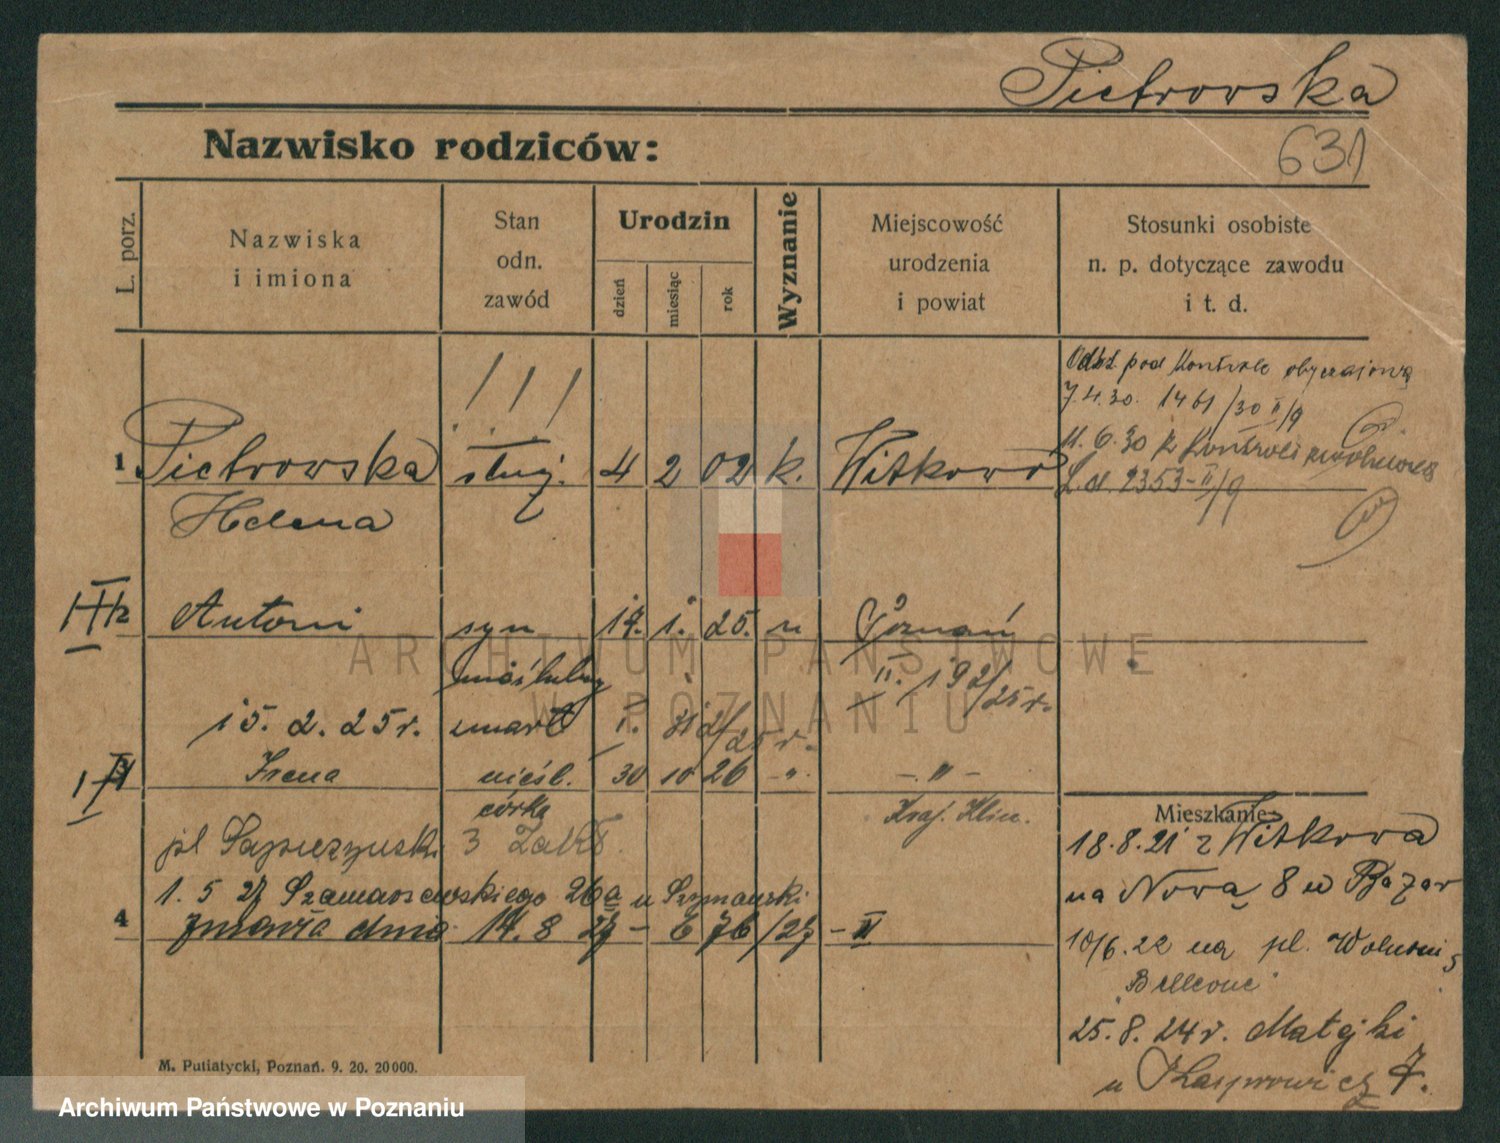 Pietrowska
Nazwisko rodziców:
631
L. porz.
Nazwiska
i imiona
Stan
odn.
zawód
Urodzin
dzień
miesiąc
rok
Wyznanie
Miejscowość
urodzenia
i powiat
Stosunki osobiste
n. p. dotyczące zawodu
i t. d.
pod kontrolę obyczajową
7.4.30. 1461/30 II/9
11.6.30 z kontroli
L. d. 2353-II/9
1 Pietrowska służ. 4 2 02 k. Witkowo
Helena
Antoni syn 17. 1. 25. " Poznań
nieślubny II. 192/25 r.
15. 2. 25 r. zmarł
Irena nieśl. 30 10 26 -"- -"-
córka
3
1. 5 27 26a u Szymański
4 zmarła dnia 14. 8 27 - E 76/27 - II
Mieszkanie
18.8.21 z Witkowa
na Nowa 8 w Bazar
10/6.22 na pl. Wolności
25.8.24 r. Matejki
u Kasprowicz 7.
M. Putiatycki, Poznań. 9. 20. 20000.
ARCHIWUM PAŃSTWOWE
W POZNANIU
Archiwum Państwowe w Poznaniu